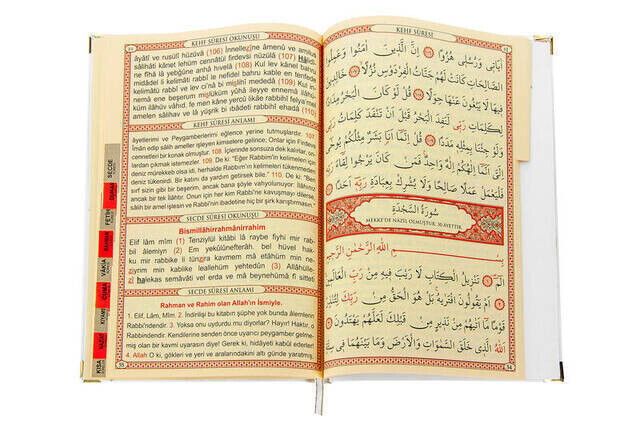 KEHF SÛRESİ OKUNUŞU
âyâtî ve rusulî hüzüvâ (106) İnnellezîne âmenû ve amilus
sâlihâti kânet lehüm cennâtül firdevsi nüzülâ (107) Hâlidî-
ne fîhâ lâ yebğûne anhâ hıvelâ (108) Kul lev kânel bahru
midâdel li kelimâti rabbî le nefidel bahru kable en tenfede
kelimâtü rabbî ve lev ci'nâ bi mislihî mededâ (109) Kul in-
nemâ ene beşerum mislüküm yûhâ ileyye ennemâ ilâhü-
küm ilâhüv vâhid, fe men kâne yercû likâe rabbihî felya'mel
amelen sâlihav ve lâ yüşrik bi ıbâdeti rabbihî ehadâ (110)
KEHF SÛRESİ ANLAMI
âyetlerimi ve Peygamberlerimi eğlence yerine tutmuşlardır. 107.
İman edip salih ameller işleyen kimselere gelince; Onlar için Firdevs
cennetleri bir konak olmuştur. 108. İçlerinde sonsuza dek kalırlar, on-
lardan çıkmak istemezler. 109. De ki: "Eğer Rabbimin kelimeleri için
deniz mürekkep olsa idi, herhalde Rabbimin kelimeleri tükenmeden
deniz tükenirdi. Bir katını da yardım getirsek bile." 110. De ki: "Ben
sırf sizin gibi bir beşerim, ancak bana şöyle vahyolunuyor: İlâhınız
ancak bir tek ilâhtır. Onun için her kim Rabbi'ne kavuşmayı dilerse
iyi amel işlesin ve Rabbi'nin ibadetine hiç bir şirk karıştırmasın.
SECDE SÛRESİ OKUNUŞU
Bismillâhirrahmânirrahîm
Elif lâm mîm (1) Tenzîylül kitâbi lâ raybe fîyhi mir rab-
bil âlemiyn (2) Em yekûlûnefterâh, bel hüvel hak-
ku mir rabbike li tünzira kavmem mâ etâhüm min ne-
ziyrim min kablike leallehüm yehtedûn (3) Allâhülle-
zî halekas semâvâti vel erda ve mâ beynehümâ fî sitteti
SECDE SÛRESİ ANLAMI
Rahman ve Rahim olan Allah'ın İsmiyle.
1. Elif, Lâm, Mîm. 2. İndirilişi bu kitabın şüphe yok bunda âlemlerin
Rabbi'ndendir. 3. Yoksa onu uydurdu mu diyorlar? Hayır! Haktır, o
Rabbindendir. Kendilerine senden önce uyarıcı peygamber gelme-
miş olan bir kavmi uyarasın diye! Gerek ki, hidâyeti kabul ederler!
4. Allah O ki, gökleri ve yeri ve aralarındakini altı günde yaratmış,
SECDE
FETİH
RAHMAN
VÂKIA
CUMA
KIYAMET
KISA
KEHF SÛRESİ
اٰيَاتٖى وَرُسُلٖى هُزُوًا ﴿١٠٦﴾ اِنَّ الَّذٖينَ اٰمَنُوا وَعَمِلُوا
الصَّالِحَاتِ كَانَتْ لَهُمْ جَنَّاتُ الْفِرْدَوْسِ نُزُلًا ﴿١٠٧﴾ خَالِدٖينَ
فٖيهَا لَا يَبْغُونَ عَنْهَا حِوَلًا ﴿١٠٨﴾ قُلْ لَوْ كَانَ الْبَحْرُ مِدَادًا
لِكَلِمَاتِ رَبّٖى لَنَفِدَ الْبَحْرُ قَبْلَ اَنْ تَنْفَدَ كَلِمَاتُ رَبّٖى
وَلَوْ جِئْنَا بِمِثْلِهٖ مَدَدًا ﴿١٠٩﴾ قُلْ اِنَّمَا اَنَا بَشَرٌ مِثْلُكُمْ يُوحٰى
اِلَىَّ اَنَّمَا اِلٰهُكُمْ اِلٰهٌ وَاحِدٌ فَمَنْ كَانَ يَرْجُوا لِقَاءَ رَبِّهٖ
فَلْيَعْمَلْ عَمَلًا صَالِحًا وَلَا يُشْرِكْ بِعِبَادَةِ رَبِّهٖ اَحَدًا
سُورَةُ السَّجْدَةِ
MEKKE'DE NAZİL OLMUŞTUR. 30 AYETTİR.
بِسْمِ اللّٰهِ الرَّحْمٰنِ الرَّحٖيمِ
الٓمٓ تَنْزٖيلُ الْكِتَابِ لَا رَيْبَ فٖيهِ مِنْ رَبِّ الْعَالَمٖينَ
اَمْ يَقُولُونَ افْتَرٰيهُ بَلْ هُوَ الْحَقُّ مِنْ رَبِّكَ لِتُنْذِرَ
قَوْمًا مَا اَتٰيهُمْ مِنْ نَذٖيرٍ مِنْ قَبْلِكَ لَعَلَّهُمْ يَهْتَدُونَ
اَللّٰهُ الَّذٖى خَلَقَ السَّمٰوَاتِ وَالْاَرْضَ وَمَا بَيْنَهُمَا فٖى